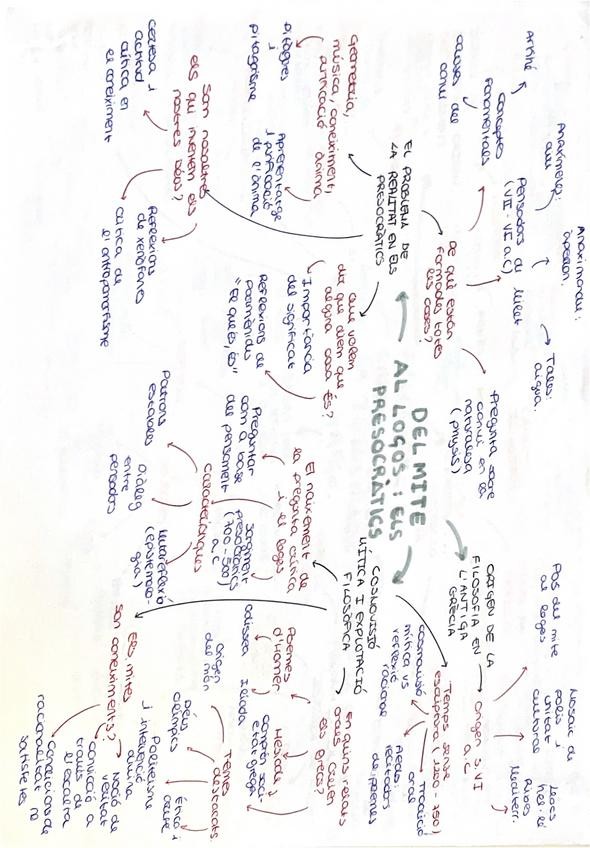 DEL MITE
AL LOGOS: ELS
PRESOCRÀTICS
ORIGEN DE LA
FILOSOFIA EN
L'ANTIGA
GRÈCIA
origen s.VI
a.C.
Pas del mite
al logos
Mosaic de
polis i
unitat
cultural
Mediterr.
COSMOVISIÓ
MÍTICA I EXPLOTACIÓ
FILOSÒFICA
cosmovisió
mítica vs
reflexió
racional
Temps sense
escriptura (1200-750)
Tradició
oral
Aedes:
recitadors
de poemes
En quins relats
orals creien
els grecs?
Poemes
d'Homer
odissea
Ilíada
Hesíode
comprèn soci-
etat grega
Temes
destacats:
origen
del món
Déus
olímpics
Politeisme
i intervenció
divina
Ètica i
Els mites
son coneixements?
Noció de
veritat
convicció a
través de
Condicions de
racionalitat no
satisfetes
El naixement de
la pregunta crítica
i el logos
Sorgiment
presocràtics
(700-500)
a.C.
Preguntar
com a base
del pensament
característiques
Patrons
estables
Diàleg
entre
pensadors
Autoreflexió
(epistemolo-
gia)
EL PROBLEMA DE
LA REALITAT EN ELS
PRESOCRÀTICS
De què estan
formades totes
les coses?
Pensadors de Milet
(VII-VI a.C)
Anaximandre:
àpeiron.
Anaxímenes:
aire
Tales:
aigua.
Pregunta sobre
canvi en la
naturalesa
(physis)
Conceptes
fonamentals
Arkhé
causes del
canvi
què volem
dir que diem que
alguna cosa És?
Importància
del significat
Reflexions de
Parmènides
"El que és, és"
Geometria,
música, coneixement,
purificació ànima
Pitàgores
i
pitagorisme
Aprenentatge
i purificació
de l'ànima
Son nosaltres
els qui inventem els
nostres Déus?
Certesa i
actitud
crítica en
el coneixement
Reflexions
de xenòfanes
crítica de
l'antropomorfisme